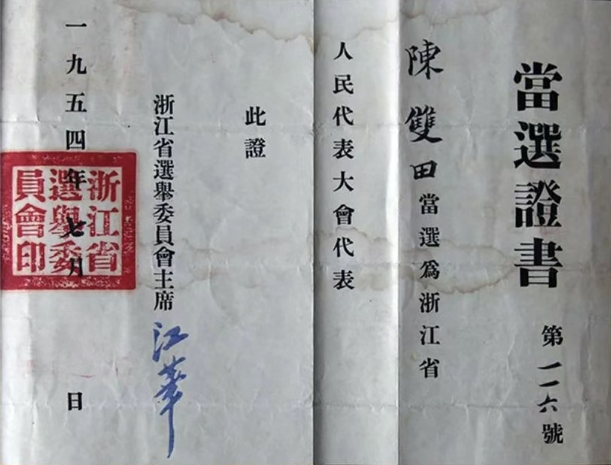 當選證書
第一一六號
陳雙田當選爲浙江省
人民代表大會代表
此證
浙江省選舉委員會主席 江華
一九五四年七月 日
浙江省
選舉委
員會印